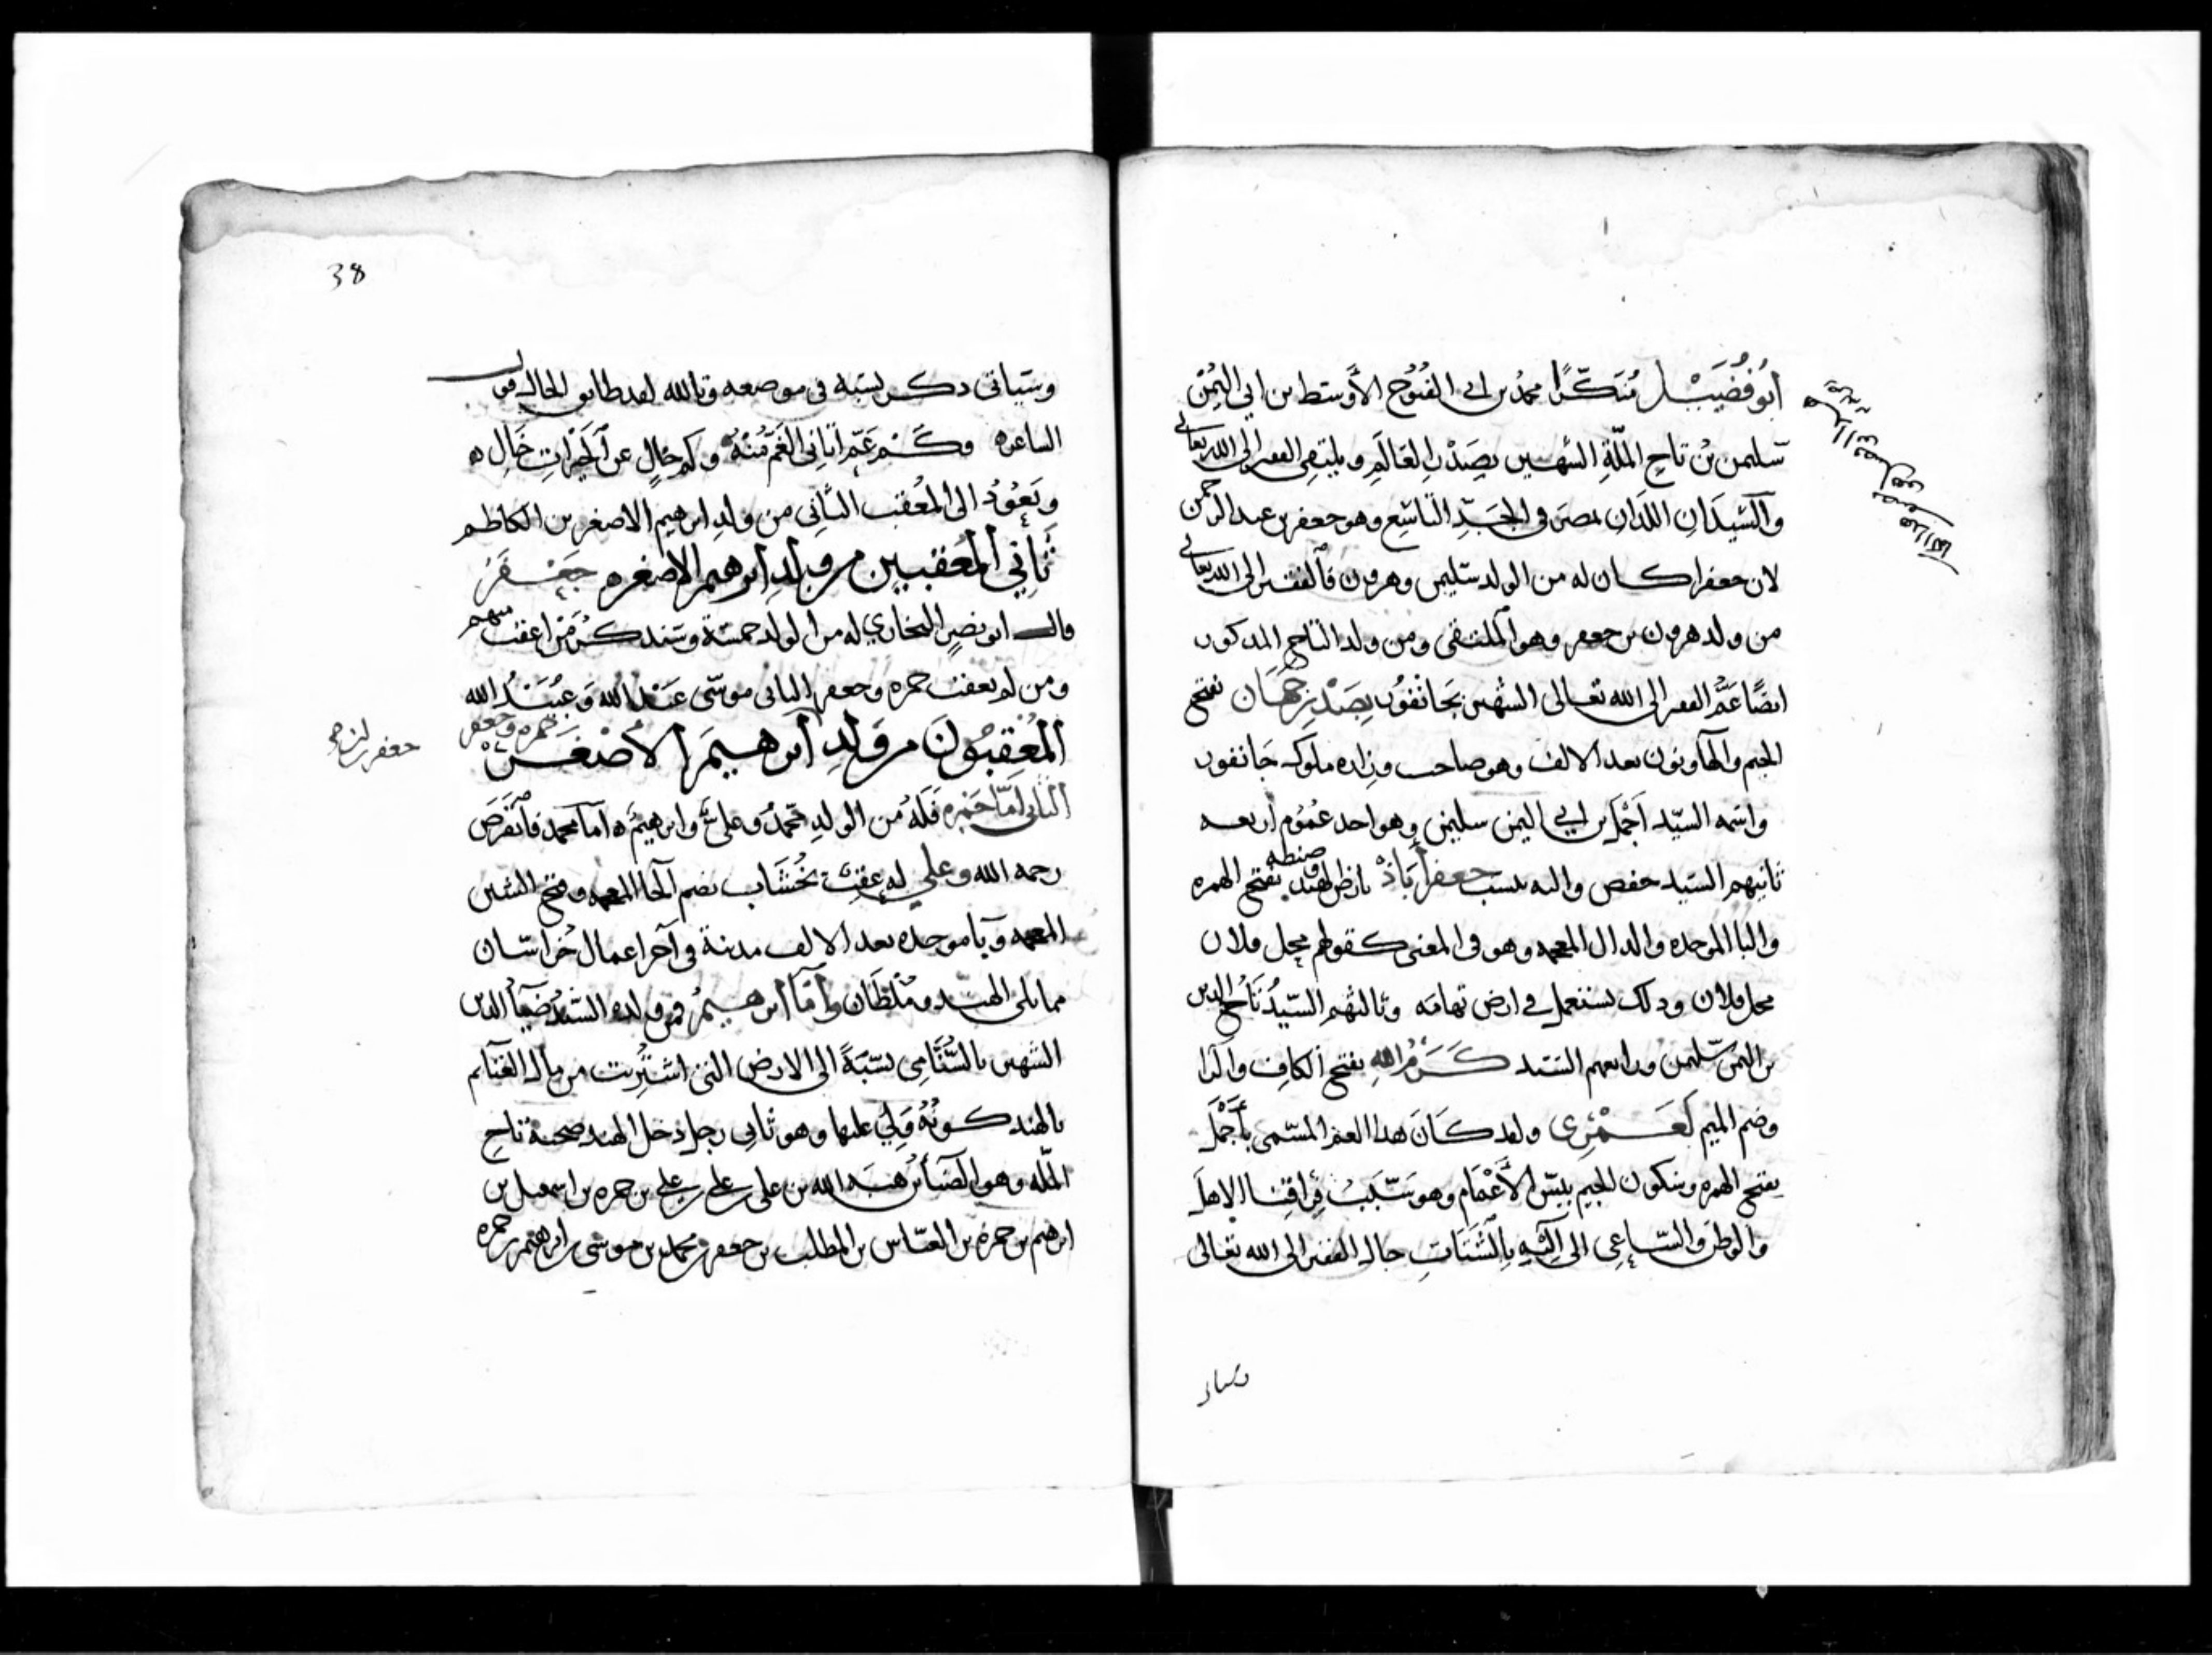 ابُو فُضَيْل مُنَكَّرًا محمد بن ابي الفُتُوح الأوسط ابن ابي اليُمْن
سليمن بن تاج الملّة الشهير بصَدْر العَالَم ويلتقي الفقير الى الله تعالى
والسّيدَانِ اللذان بمصر في الجَدِّ التاسِع وهو جعفر بن عبد الرحمن
لان جعفرا كان له من الولد سليمن وهرون فالفقير الى الله تعالى
من ولد هرون بن جعفر وهو الملتقى ومن ولد التاج المذكور
ايضًا عَمُّ الفقير الى الله تعالى الشهير بجَانْفُور بِصَدْرِ جَهَان بفتح
الجيم والها ونون بعد الالف وهو صاحب وزاره ملوك جَانفور
واسْمه السيّد اَجْمَل بن ابي اليمن سليمن وهو احد عُمُوم اربعه
ثانيهم السيّد حفص واليه ينسب جعفرأبَاذْ بارض الهند بفتح الهمزه
والبا الموحده والدال المعجمه وهو في المعنى كقولهم محل فلان
محل فلان وذلك يستعمل في ارض تهامَه وثالثهم السيّدُ تَاجُ الدين
بن اليمن سليمن ورابعهم السّيد كَرَمُ الله بفتح الكافِ والرا
وضم الميم لَعَمْرِي ولقد كَانَ هذا العمّ المسمى بأَجْمَل
بفتح الهمزه وسكون الجيم بيسَ الأَعْمَام وهو سَبَبُ فِراقِنا الاهلَ
والوطنَ والسّاعِي الى اللّه بالشّتَاتِ حال الفقير الى الله تعالى
وسياتي
38
وسَيَاتي ذكر نسَبه في موضعه وتالله لقد طابق الحال قول
الشاعر ه وكَمْ عَمٍّ أتاني الغَمُّ مِنْهُ وكم خالٍ عن الخَيْراتِ خَالِ ه
ونَعُودُ الى المُعْقب الثاني من ولد ابرهيم الاصغر بن الكاظم
ثَاني المُعْقبين من ولد ابرهيم الاصغر ه جَعْفَر
قال ابو نصر البخاري له من الولد خمسَة وسَنذكُر مَنْ اعقبَ منهم
ومن لم يعقب حمزه وجعفر الثاني موسَى عَبْد الله وعُبَيْدُ الله
المُعْقِبُونَ من وَلدِ ابرهيمَ الأَصْغَر حمزه وجعفر
الثاني امّا حَمْزه فَلَهُ من الولدِ محمّدٌ وعليٌّ وابرهيمُ ه امّا محمد فانْقَرَضَ
رحمه الله وعلي له عقبٌ بخُشَاب بضم الخا المعجمه وفتح الشين
المعجمه وبَا موحده بعد الالف مدينة في آخر اعمال خُراسَان
مما يلي الهند ومُلْطَان وأمّا ابرهيمُ فمن ولده السّيّدُ ضِيَا الدين
الشهير بالسّنَامِي نسْبَةً الى الارض التي اشتُرِيت من مال الغنَآئم
بالهند كونُهُ وَلِيَ عليها وهو ثاني رجل دخل الهند صحبة تاج
الملّه وهو الضيأ بن هبَة الله بن علي بن علي بن علي بن حمزه بن اسمعيل بن
ابرهيم بن حمزه بن العبّاس بن المطلب بن جعفر بن محمد بن موسى بن ابرهيم بن حمزه